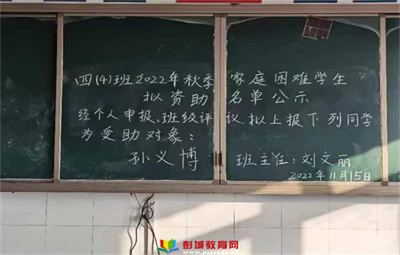 四(4)班2022年秋季家庭困难学生
拟资助名单公示
经个人申报、班级评议,拟上报下列同学
为受助对象:
孙义博 班主任:刘文丽
2022年11月15日
彭城教育网